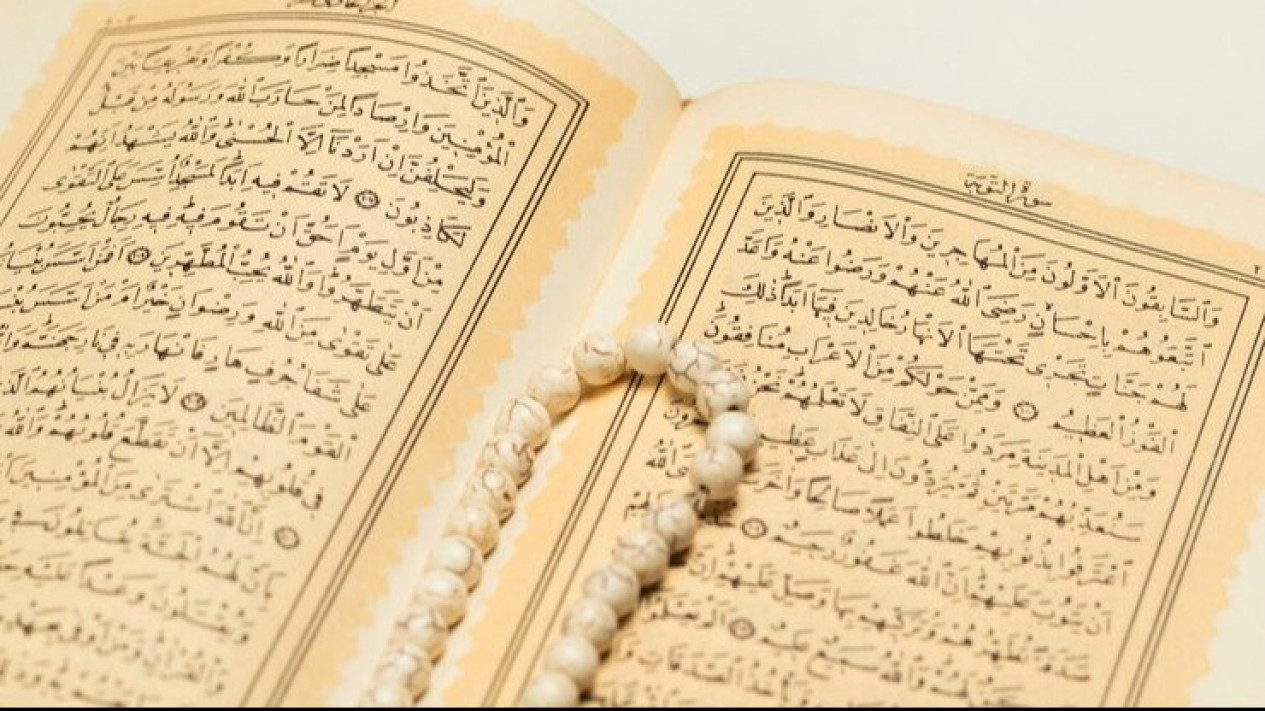 سورة التوبة
وَالسَّابِقُونَ الْاَوَّلُونَ مِنَ الْمُهَاجِرِينَ وَالْاَنْصَارِ وَالَّذِينَ
اتَّبَعُوهُمْ بِاِحْسَانٍ رَضِيَ اللّٰهُ عَنْهُمْ وَرَضُوا عَنْهُ وَاَعَدَّ
لَهُمْ جَنَّاتٍ تَجْرِي تَحْتَهَا الْاَنْهَارُ خَالِدِينَ فِيهَا اَبَدًا ذٰلِكَ
الْفَوْزُ الْعَظِيمُ وَمِمَّنْ حَوْلَكُمْ مِنَ الْاَعْرَابِ مُنَافِقُونَ
وَمِنْ اَهْلِ الْمَدِينَةِ مَرَدُوا عَلَى النِّفَاقِ لَا تَعْلَمُهُمْ نَحْنُ
سَنُعَذِّبُهُمْ مَرَّتَيْنِ ثُمَّ يُرَدُّونَ اِلٰى عَذَابٍ عَظِيمٍ
اعْتَرَفُوا بِذُنُوبِهِمْ خَلَطُوا عَمَلًا صَالِحًا وَاٰخَرَ اللّٰهُ
اَنْ يَتُوبَ عَلَيْهِمْ اِنَّ اللّٰهَ غَفُورٌ رَحِيمٌ
صَدَقَةً تُطَهِّرُهُمْ وَتُزَكِّيهِمْ بِهَا وَصَلِّ عَلَيْهِمْ اِنَّ
وَاللّٰهُ سَمِيعٌ عَلِيمٌ اَلَمْ يَعْلَمُوا
وَيَأْخُذُ الصَّدَقَاتِ
وَالَّذِينَ اتَّخَذُوا مَسْجِدًا ضِرَارًا وَكُفْرًا وَتَفْرِيقًا بَيْنَ
الْمُؤْمِنِينَ وَاِرْصَادًا لِمَنْ حَارَبَ اللّٰهَ وَرَسُولَهُ مِنْ قَبْلُ
وَلَيَحْلِفُنَّ اِنْ اَرَدْنَا اِلَّا الْحُسْنٰى وَاللّٰهُ يَشْهَدُ اِنَّهُمْ
لَكَاذِبُونَ لَا تَقُمْ فِيهِ اَبَدًا لَمَسْجِدٌ اُسِّسَ عَلَى التَّقْوٰى
مِنْ اَوَّلِ يَوْمٍ اَحَقُّ اَنْ تَقُومَ فِيهِ فِيهِ رِجَالٌ يُحِبُّونَ
اَنْ يَتَطَهَّرُوا وَاللّٰهُ يُحِبُّ الْمُطَّهِّرِينَ اَفَمَنْ اَسَّسَ بُنْيَانَهُ
عَلٰى تَقْوٰى مِنَ اللّٰهِ وَرِضْوَانٍ خَيْرٌ اَمْ مَنْ اَسَّسَ
عَلٰى شَفَا جُرُفٍ هَارٍ فَانْهَارَ بِهِ فِي نَارِ جَهَنَّمَ وَاللّٰهُ
الْقَوْمَ الظَّالِمِينَ لَا يَزَالُ بُنْيَانُهُمُ الَّذِي
فِي قُلُوبِهِمْ اِلَّا اَنْ تَقَطَّعَ قُلُوبُهُمْ وَاللّٰهُ
اِنَّ اللّٰهَ اشْتَرٰى مِنَ الْمُؤْمِنِينَ
بِاَنَّ لَهُمُ الْجَنَّةَ يُقَاتِلُونَ فِي
وَيُقْتَلُونَ وَعْدًا عَلَيْهِ
وَالْقُرْاٰنِ وَمَنْ اَوْفٰى بِعَهْدِهِ